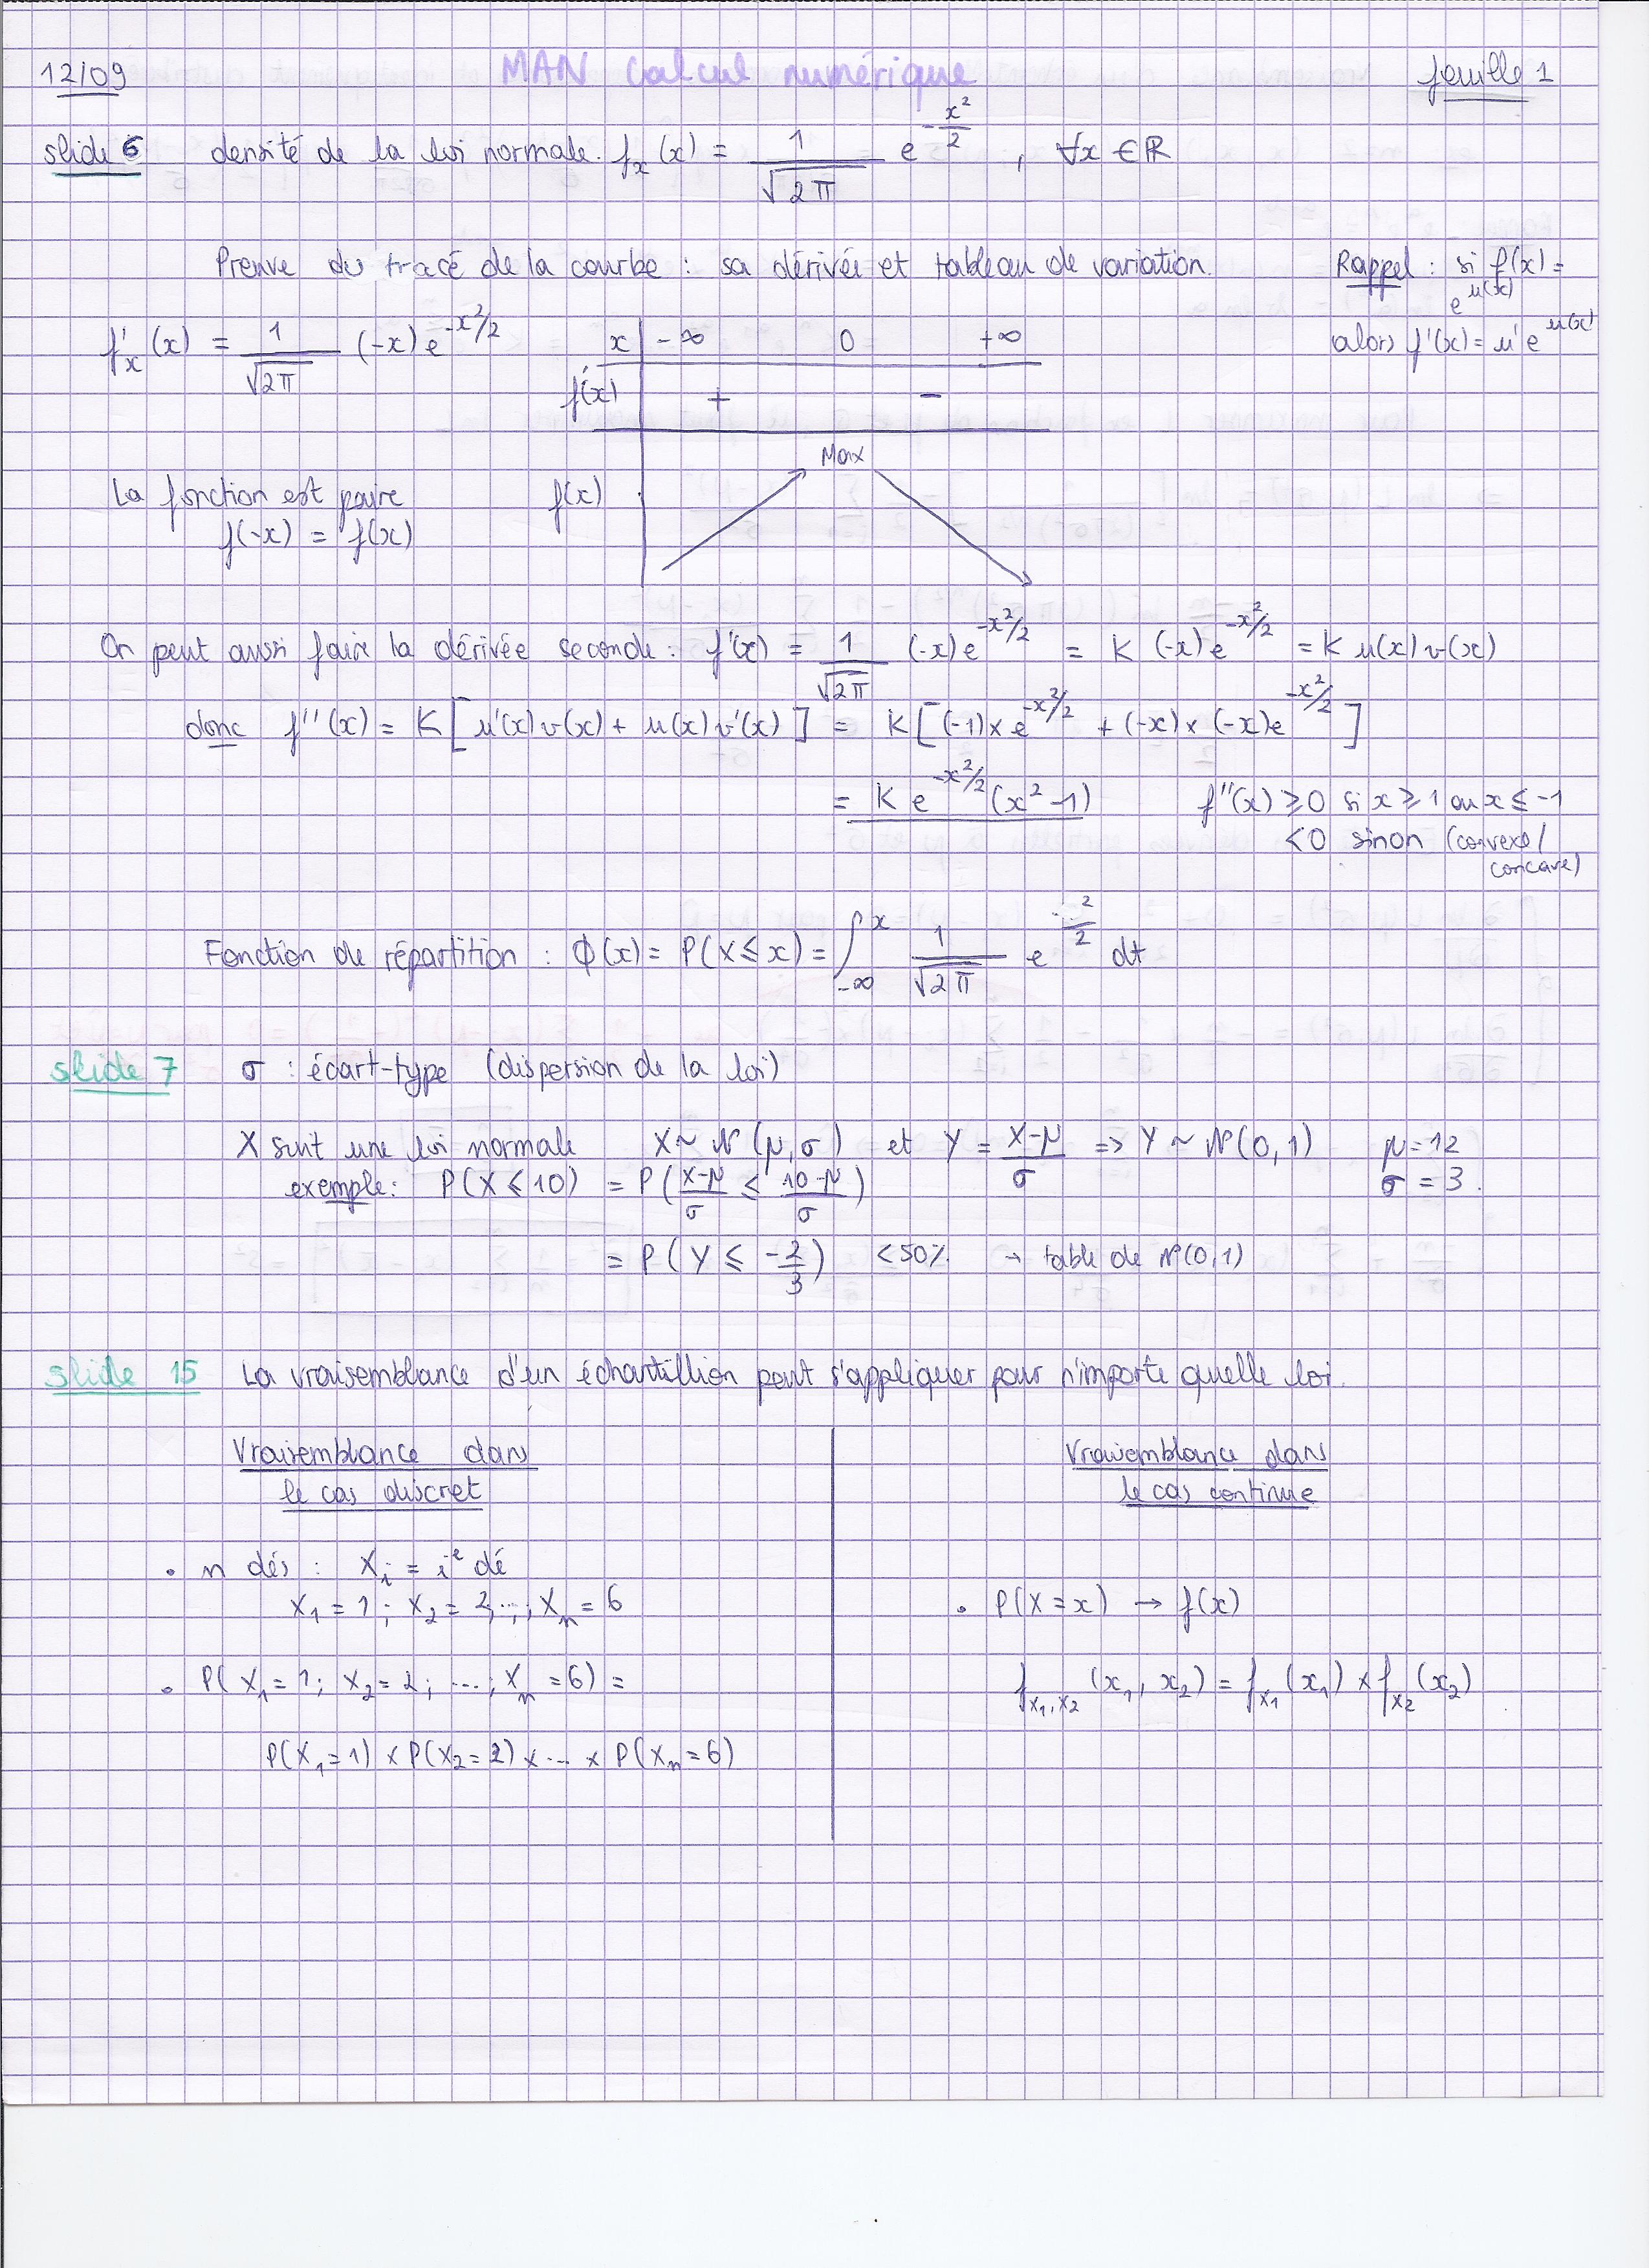 12/09 MAN Calcul numérique feuille 1
slide 6 densité de la loi normale. fₓ(x) = 1/√2π e^(-x²/2) , ∀x ∈ ℝ
Preuve du tracé de la courbe : sa dérivée et tableau de variation. Rappel : si f(x) = e^u(x)
alors f'(x) = u' e^u(x)
f'ₓ(x) = 1/√2π (-x) e^(-x²/2)
x | -∞ 0 +∞
f'(x) | + -
Max
f(x)
La fonction est paire
f(-x) = f(x)
On peut aussi faire la dérivée seconde : f'(x) = 1/√2π (-x) e^(-x²/2) = K (-x) e^(-x²/2) = K u(x) v(x)
donc f''(x) = K [ u'(x) v(x) + u(x) v'(x) ] = K [ (-1) × e^(-x²/2) + (-x) × (-x) e^(-x²/2) ]
= K e^(-x²/2) (x² - 1) f''(x) ⩾ 0 si x ⩾ 1 ou x ⩽ -1
< 0 sinon (convexe/
concave)
Fonction de répartition : ϕ(x) = P(X ⩽ x) = ∫_{-∞}^{x} 1/√2π e^(-²/2) dt
slide 7 σ : écart-type (dispersion de la loi)
X suit une loi normale X ~ N(μ, σ) et Y = (X-μ)/σ => Y ~ N(0, 1) μ = 12
exemple : P(X ⩽ 10) = P( (X-μ)/σ ⩽ (10-μ)/σ ) σ = 3.
= P( Y ⩽ -2/3 ) < 50% → table de N(0,1)
slide 15 La vraisemblance d'un échantillion peut s'appliquer pour n'importe quelle loi.
Vraisemblance dans
le cas discret
• n dés : Xᵢ = iᵉ dé
X₁ = 1 ; X₂ = 2, ..., ; Xₙ = 6
• P( X₁ = 1 ; X₂ = 2 ; .... ; Xₙ = 6) =
P(X₁ = 1) × P(X₂ = 2) × ... × P(Xₙ = 6)
Vraisemblance dans
le cas continue
• P(X = x) → f(x)
f_{X₁,X₂} (x₁, x₂) = f_{X₁} (x₁) × f_{X₂} (x₂)